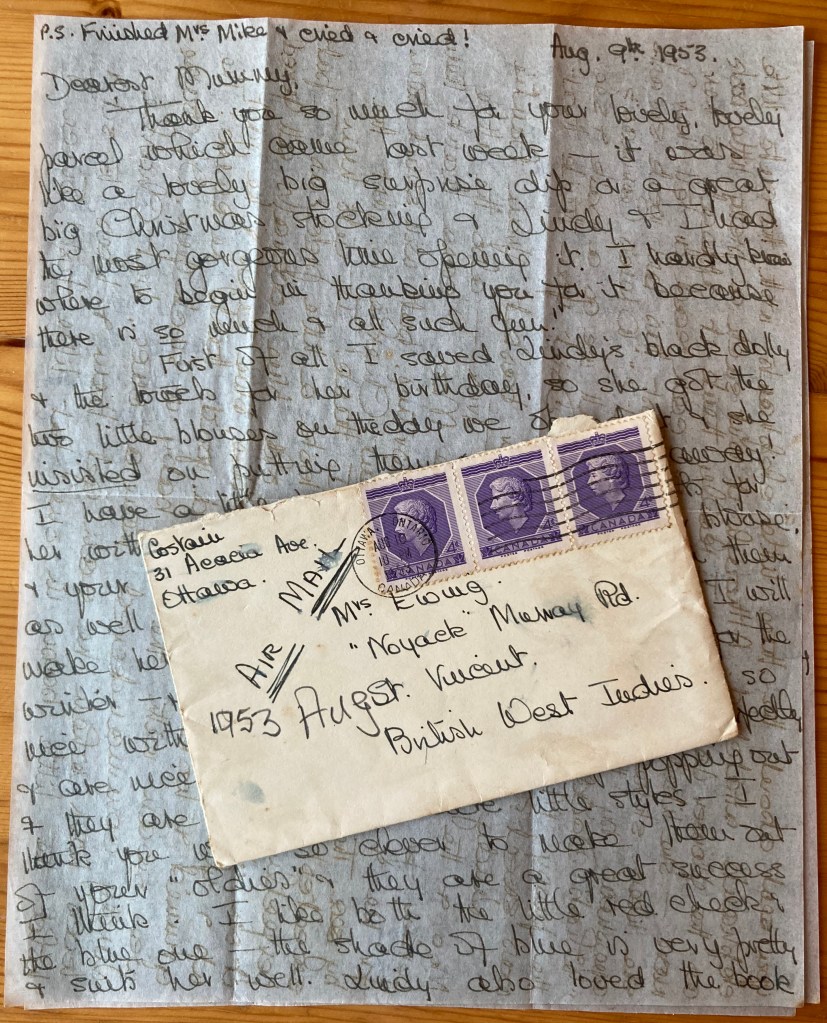 P.S. Finished Mrs Mike & cried & cried!
Aug. 9th 1953.
Dearest Mummy,
Thank you so much for your lovely, lovely
parcel which came last week – it was
like a lovely big surprise dip or a great
big Christmas stocking & Lindy & I had
the most gorgeous time opening it. I hardly know
where to begin in thanking you for it because
there is so much & all such fun!
First of all, I saved Lindy's black dolly
& the for her birthday, so she got the
two little blouses on the day we & she
insisted on putting them away!
I have a little for
her with blouse
& your them
as well I will
make her the
winter – so
nice with
& are nice popping out
& they are little styles – I
think you so clever to make them out
of your "oldies" & they are a great success
I think. I like both the little red check &
the blue one – the shade of blue is very pretty
& suits her well. Lindy also loved the book
Costain
31 Acacia Ave.
Ottawa.
AIR MAIL
OTTAWA ONTARIO
AUG 10
CANADA
4¢
CANADA
4¢
CANADA
4¢
CANADA
Mrs Ewing.
"Noyack" Murray Rd.
St. Vincent.
British West Indies.
1953 Aug